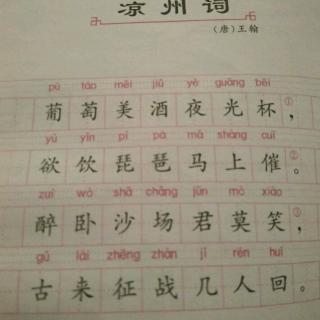 凉州词
（唐）王翰
pú táo měi jiǔ yè guāng bēi
葡萄美酒夜光杯①，
yù yǐn pí pá mǎ shàng cuī
欲饮琵琶马上催②。
zuì wò shā chǎng jūn mò xiào
醉卧沙场君莫笑③，
gǔ lái zhēng zhàn jǐ rén huí
古来征战几人回。